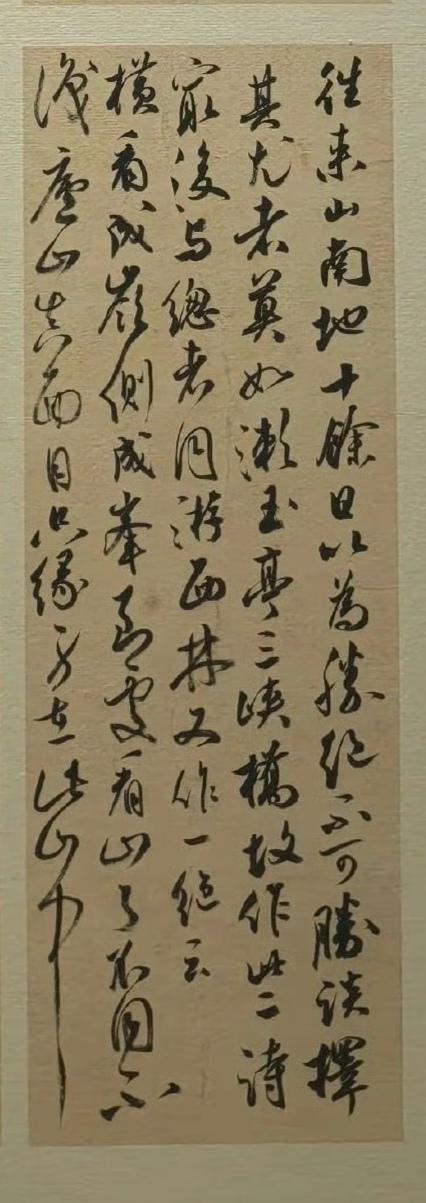 往來山南地十餘日以為勝絕不可勝談擇
其尤者莫如漱玉亭三峽橋故作此二詩
最後與總老同游西林又作一絕云
橫看成嶺側成峯到處看山了不同不
識廬山真面目只緣身在此山中